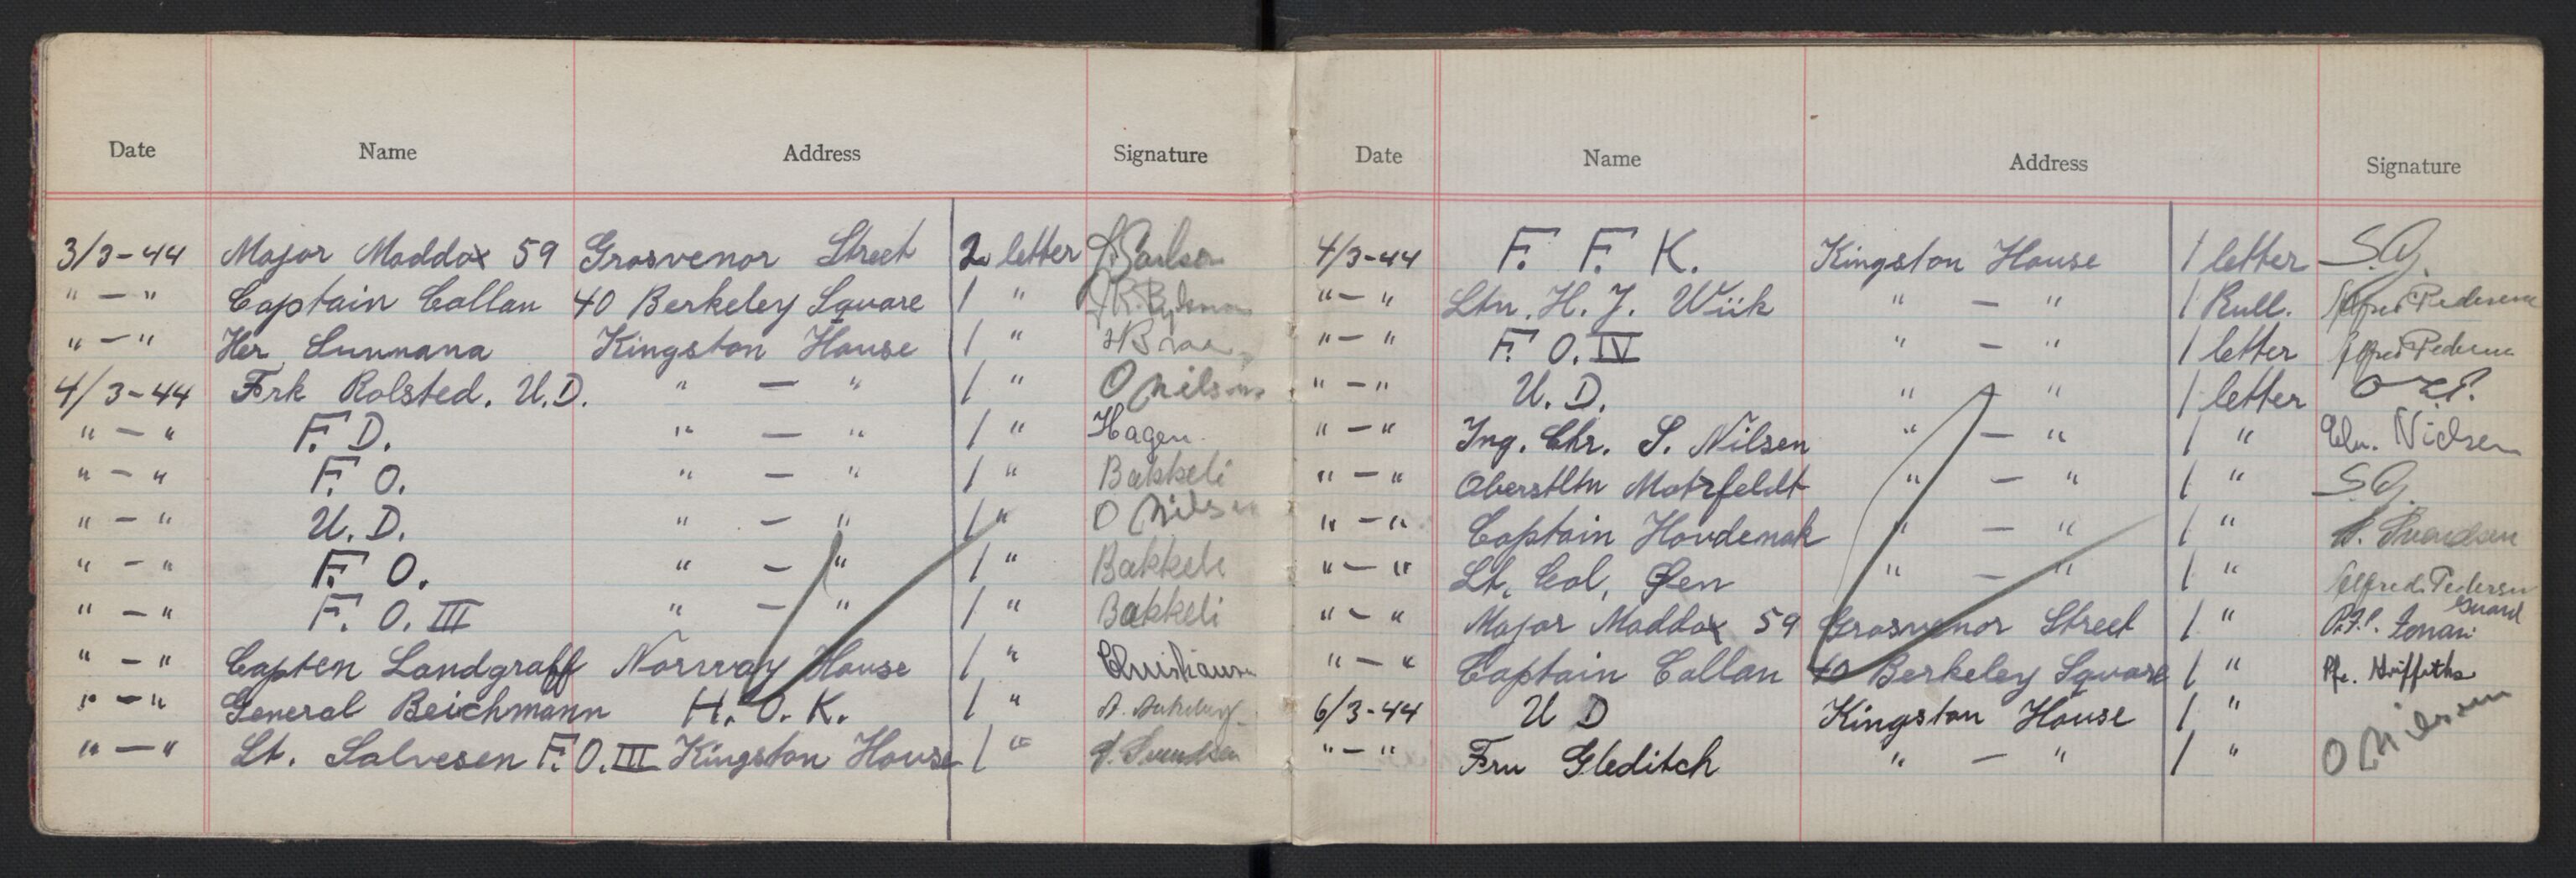 Date Name Address Signature
3/3-44 Major Maddox 59 Grosvenor Street 2 letter
" — " Captain Callan 40 Berkeley Square 1 "
" — " Her Sunmana Kingston House 1 "
4/3-44 Frk Rolsted. U.D. " — " 1 " O Nilsen
" — " F. D. " — " 1 " Hagen.
" — " F. O. " — " 1 " Bakkeli
" — " U. D. " — " 1 " O Nilsen
" — " F. O. " — " 1 " Bakkeli
" — " F. O. III " — " 1 " Bakkeli
" — " Capten Landgraff Norway House 1 " Christiansen
" — " General Beichmann H. O. K. 1 "
" — " Lt. Salvesen F. O. III Kingston House 1 "
Date Name Address Signature
4/3-44 F. F. K. Kingston House 1 letter
" — " Ltn. H. J. Wiik " — " 1 Rull. Alfred Pedersen
" — " F. O. IV " — " 1 letter Alfred Pedersen
" — " U. D. " — " 1 letter
" — " Ing. Chr. S. Nilsen " — " 1 " Nielsen
" — " Oberstltn Motzfeldt " — " 1 "
" — " Captain Hovdenak " — " 1 " Svendsen
" — " Lt. Col. Øen " — " 1 " Alfred Pedersen
" — " Major Maddox 59 Grosvenor Street 1 " Guard
" — " Captain Callan 40 Berkeley Square 1 " Pfc. Griffiths
6/3-44 U D Kingston House 1 " O Nilssen
" — " Fru Gleditch " — " 1 "